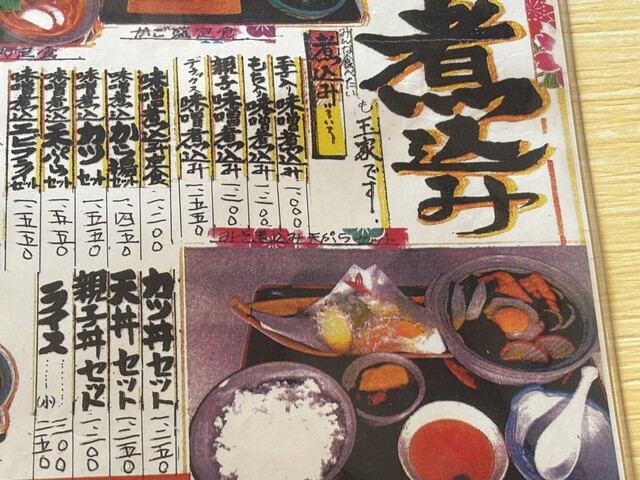 煮込み
みんな食べたい
も王家です。
煮込みいろいろ
玉子入り味噌煮込み 一、〇〇〇
もち入り味噌煮込み 一、二〇〇
親子味噌煮込み 一、二〇〇
デラックス味噌煮込み 一、五五〇
味噌煮込み定食 一、二〇〇
味噌煮込みかご揚セット 一、四五〇
味噌煮込みカツセット 一、五五〇
味噌煮込み天ぷらセット 一、五五〇
味噌煮込みエビフライセット 一、五五〇
かご揚定食
定食
みそ煮込み天ぷらセット
カツ丼セット 一、二五〇
天丼セット 一、二五〇
親子丼セット 一、二〇〇
ライス 二〇〇
(小) 一五〇